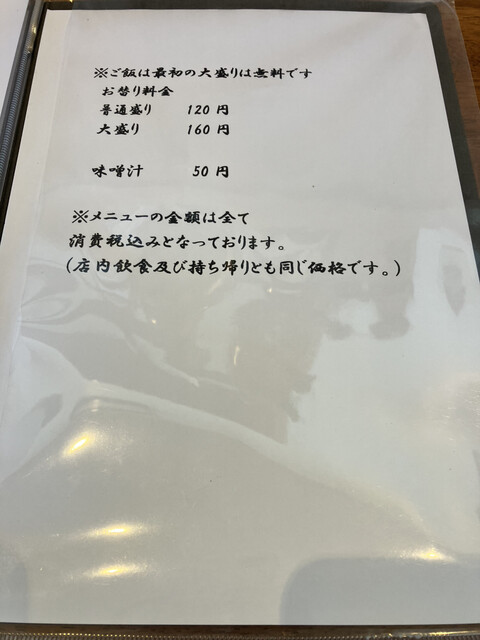 ※ご飯は最初の大盛りは無料です
お替り料金
普通盛り 120 円
大盛り 160 円
味噌汁 50 円
※メニューの金額は全て
消費税込みとなっております。
(店内飲食及び持ち帰りとも同じ価格です。)